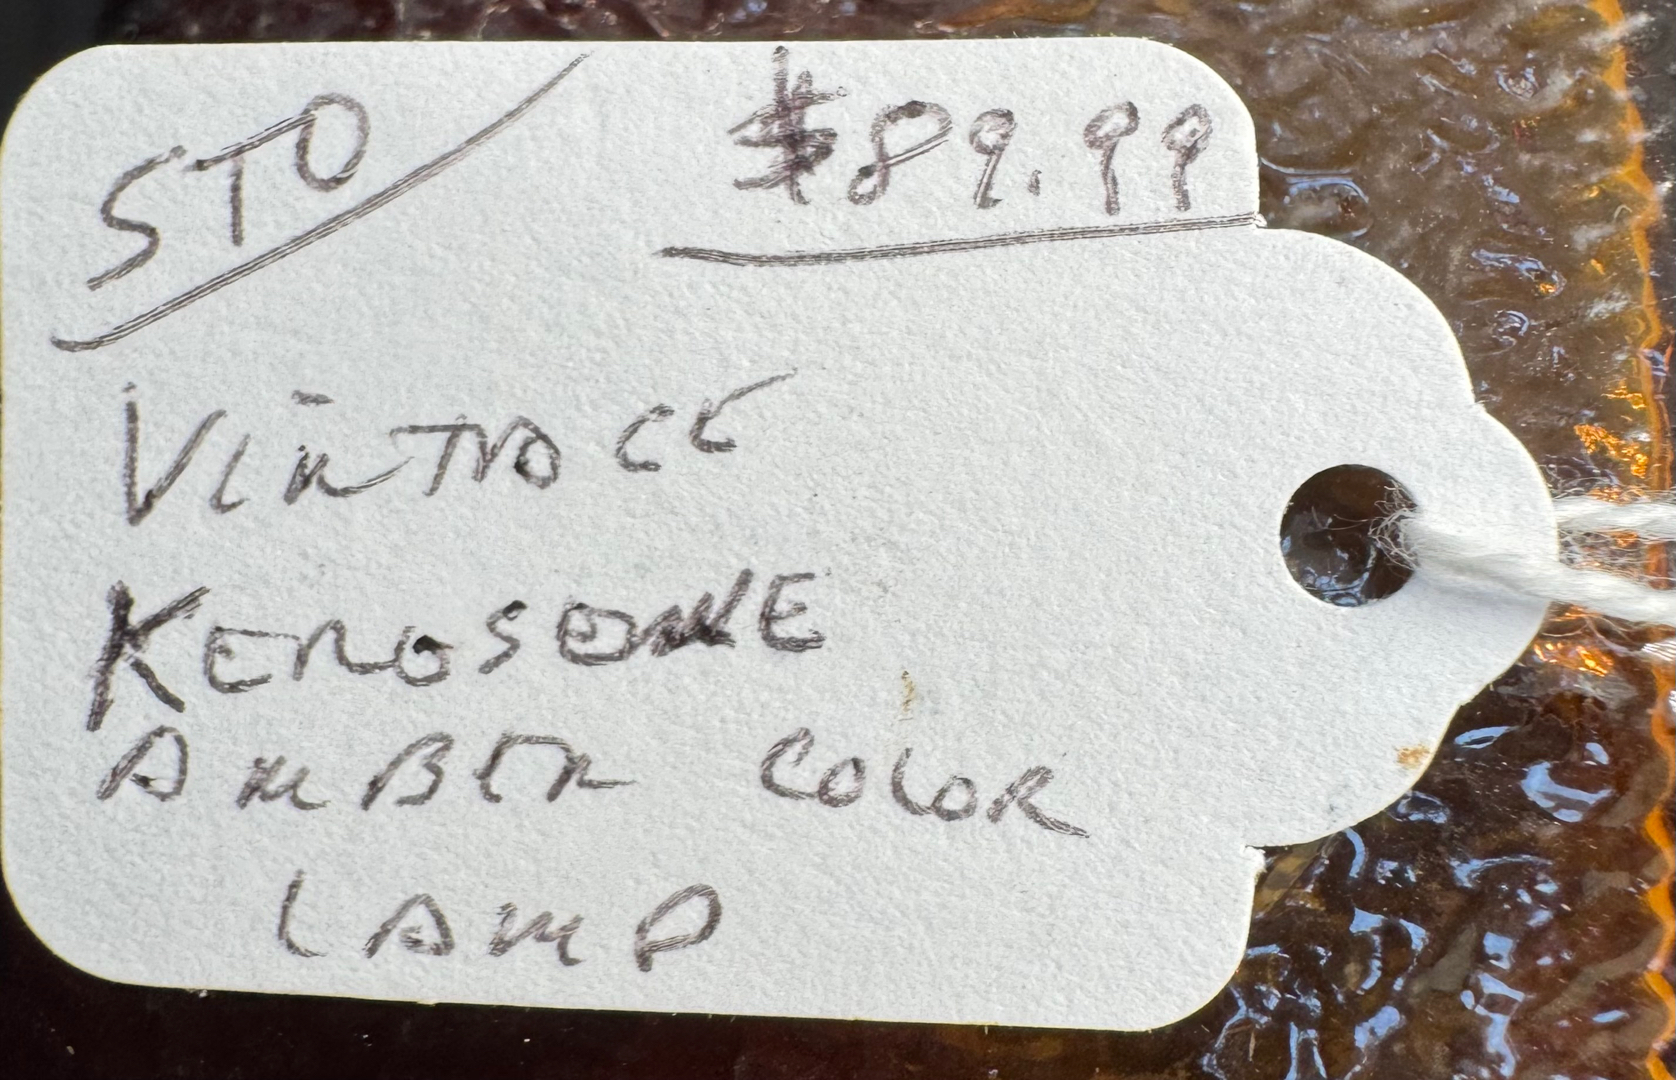 STO $89.99
VINTAGE
KEROSENE
AMBER COLOR
LAMP